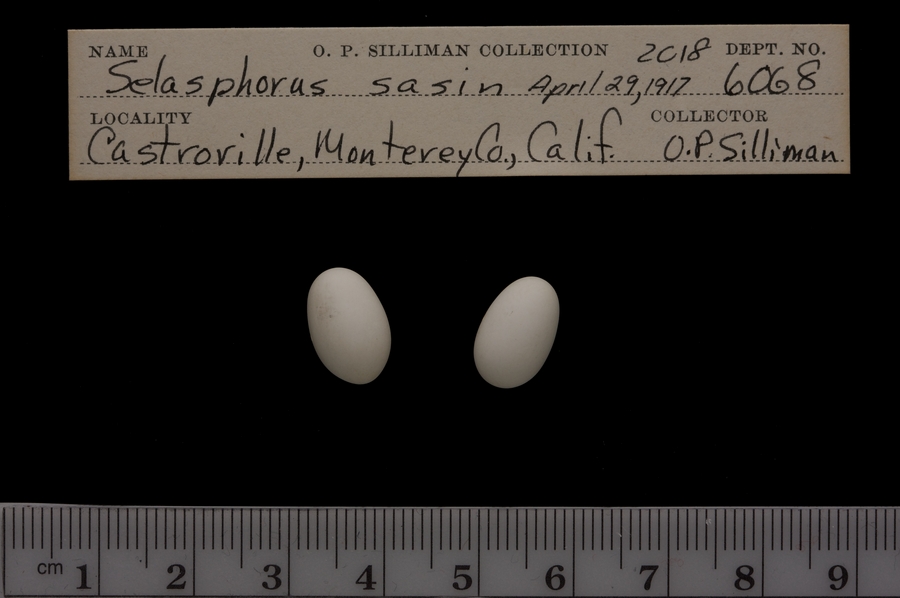 NAME O. P. SILLIMAN COLLECTION 2018 DEPT. NO.
Selasphorus sasin April 29, 1917 6068
LOCALITY COLLECTOR
Castroville, Monterey Co., Calif. O.P. Silliman
cm 1 2 3 4 5 6 7 8 9